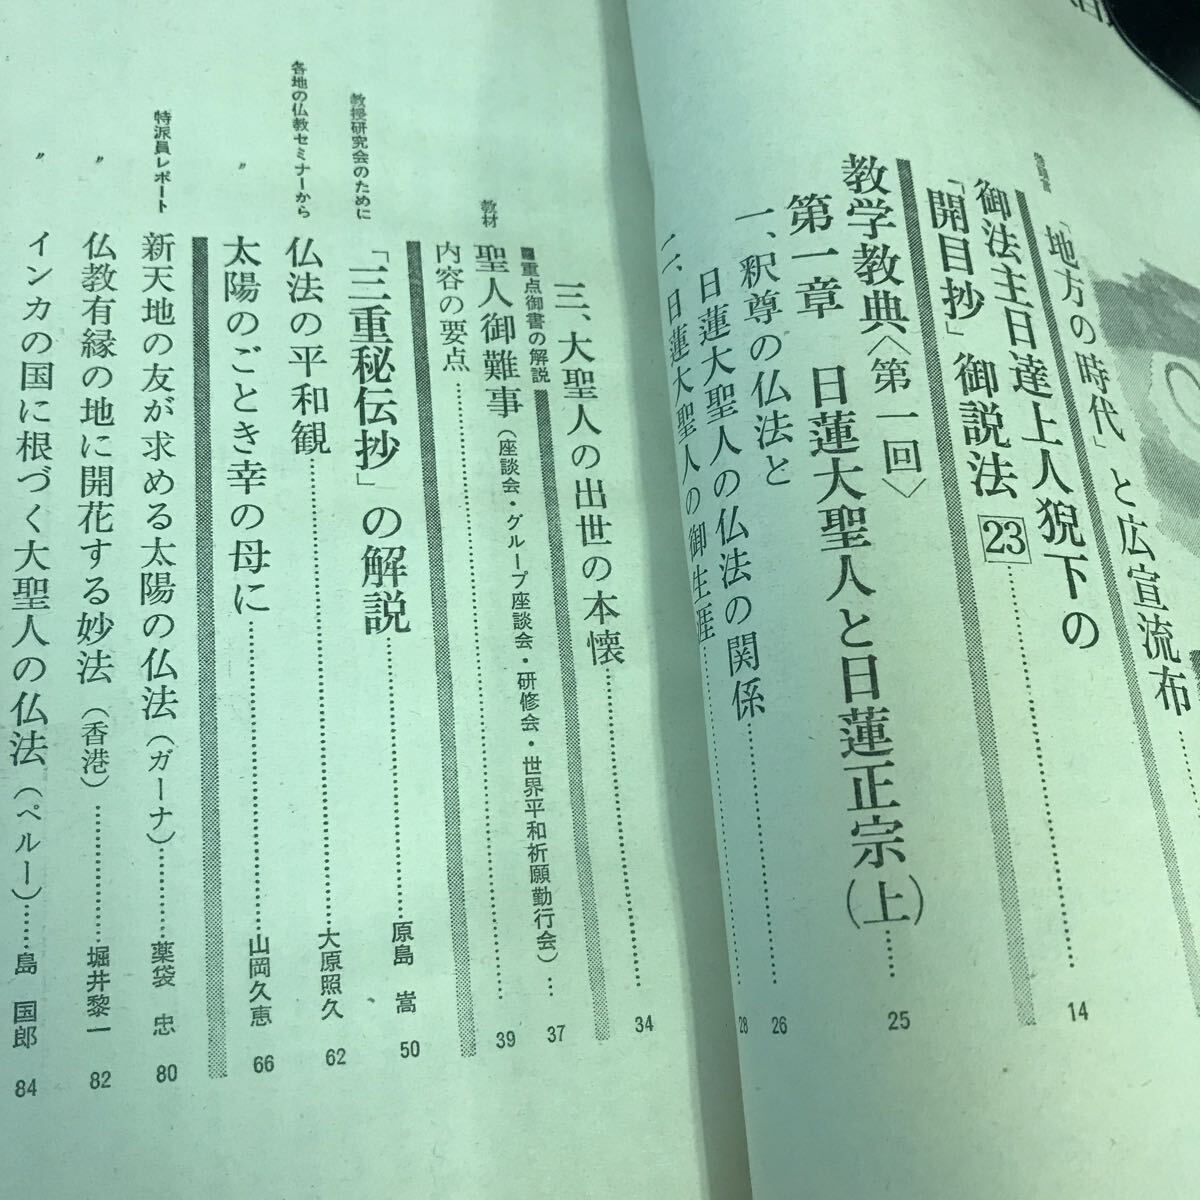 「地方の時代」と広宣流布
御法主日達上人猊下の
「開目抄」御説法 23 …… 14
教学教典〈第一回〉
第一章 日蓮大聖人と日蓮正宗(上) …… 25
一、釈尊の仏法と
日蓮大聖人の仏法の関係 …… 26
二、日蓮大聖人の御生涯 …… 28
三、大聖人の出世の本懐 …… 34
■重点御書の解説
教材 聖人御難事(座談会・グループ座談会・研修会・世界平和祈願勤行会) … 37
内容の要点 …… 39
教授研究会のために 「三重秘伝抄」の解説 …… 原島 嵩 50
各地の仏教セミナーから 仏法の平和観 …… 大原照久 62
〃 太陽のごとき幸の母に …… 山岡久恵 66
特派員レポート 新天地の友が求める太陽の仏法(ガーナ) …… 薬袋 忠 80
〃 仏教有縁の地に開花する妙法(香港) …… 堀井黎一 82
〃 インカの国に根づく大聖人の仏法(ペルー) …… 島 国郎 84